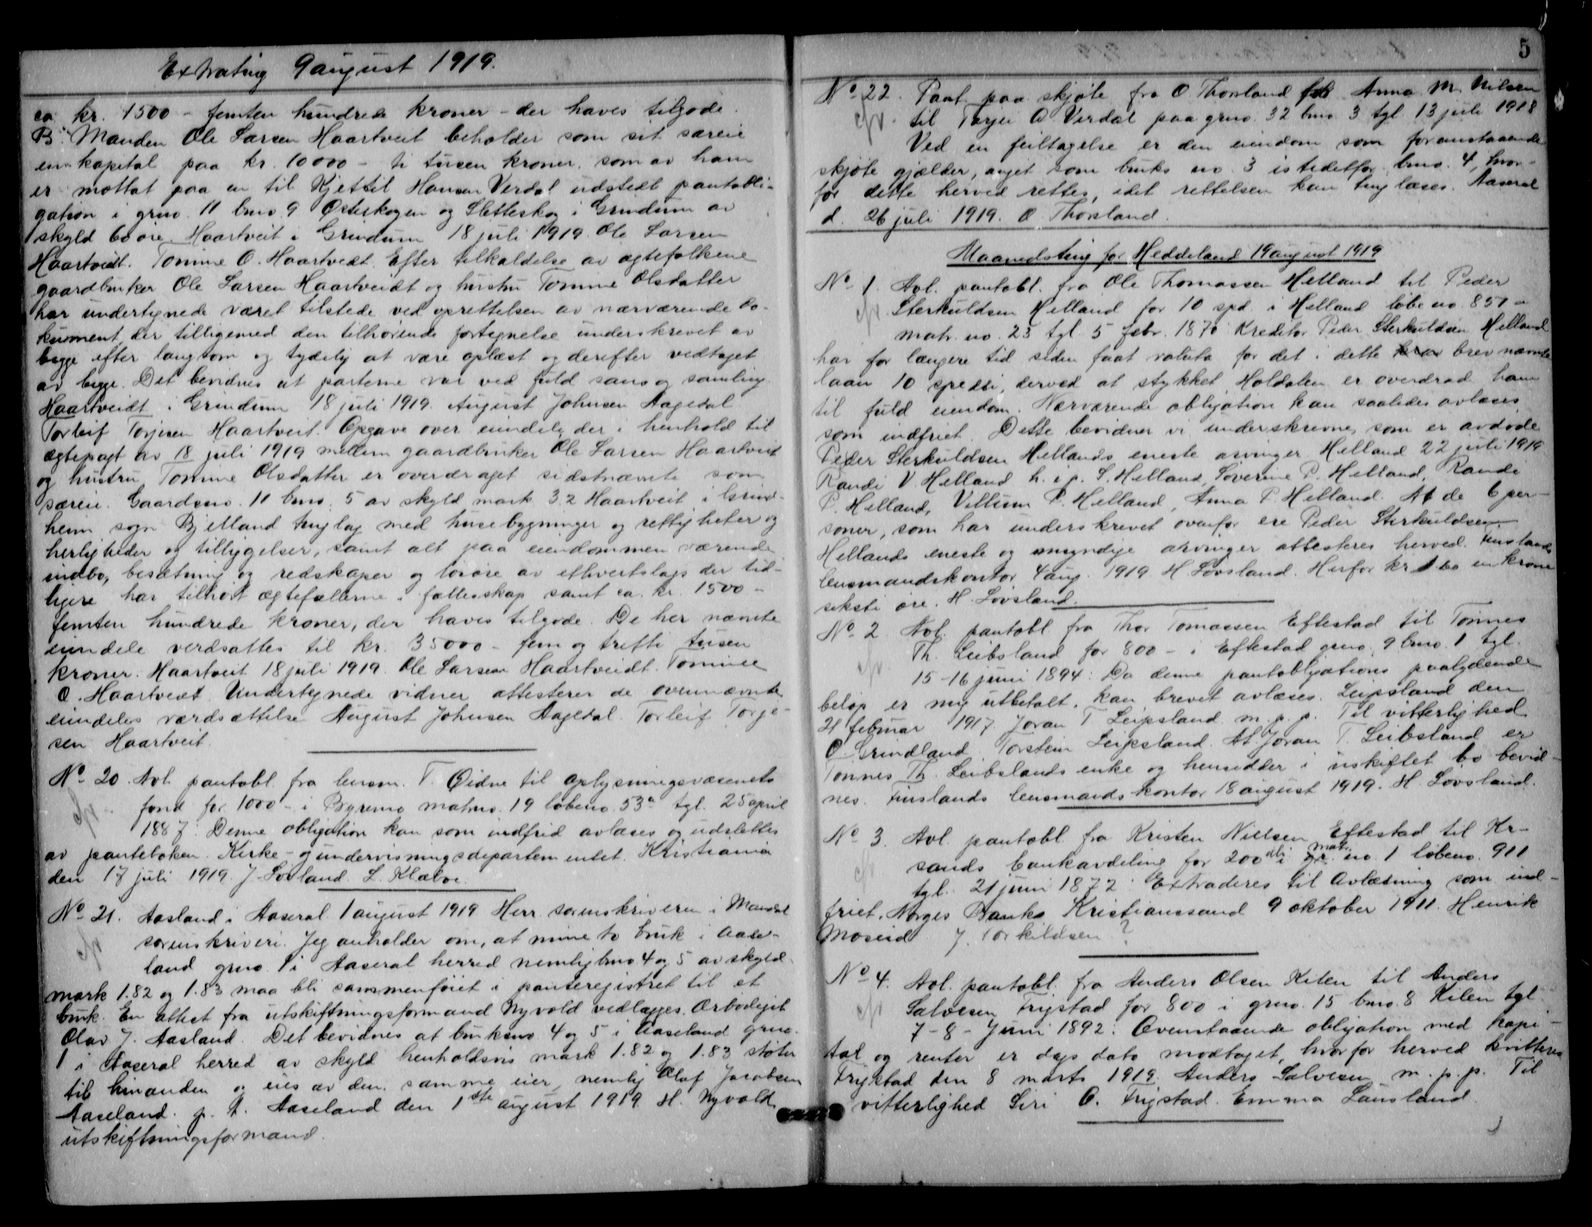 Extrating 9 august 1919.
ca kr. 1500 - femten hundrede kroner - der haves tilgode
B. Manden Ole Larsen Haartveit beholder som sit særeie
en kapital paa kr. 10000 - ti tusen kroner, som av ham
er mottat paa en til Kjettil Hansen Verdal utstedt pantobli-
gation i grno. 11 bno 9 Østeskogen og Sletteskog i Grindum av
skyld 60 øre. Haartveit i Grendum 18 juli 1919. Ole Larsen
Haartveidt. Tomine O. Haartvedt. Efter tilkaldelse av egtefolkene
gaardbruker Ole Larsen Haartveidt og hustru Tomine Olsdatter
har undertegnede været tilstede ved oprettelsen av nærværende do-
kument der tilligemed den tilhørende fortegnelse underskrevet av
begge efter langsom og tydelig at være oplæst og derefter vedtaget
av begge. Det bevidnes at parterne var ved fuld sans og samling.
Haartveidt i Grindum 18 juli 1919. August Johnsen Aagedal
Torleif Torjesen Haartveit. Opgave over eiendele der i henhold til
egtepagt av 18 juli 1919 mellem gaardbruker Ole Larsen Haartveit
og hustru Tomine Olsdatter er overdraget sidstnævnte som
særeie. Gaardsno. 11 bno. 5 av skyld mark 3.2 Haartveit i Grind-
heim sogn Bjelland tinglag med husebygninger og rettigheter og
herligheder og tillygelser, samt alt paa eiendommen værende
indbo, besætning og redskaper og løsøre av ethvertslags der tid-
ligere har tilhørt egtefællerne i fællesskap samt ca. kr. 1500 -
femten hundrede kroner, der haves tilgode. De her nævnte
eiendele verdsattes til kr. 35000 - fem og tretti tusen
kroner. Haartveit 18 juli 1919 Ole Larsen Haartveidt. Tomine
O. Haartvedt. Undertegnede vidner attesterer de ovennævnte
eiendeles værdsættelse August Johnsen Aagedal. Torleif Torje-
sen Haartveit.
No 20. Avl. pantobl. fra lensm. T. Øidne til Oplysningsvæsenets
fond for 1000 - i Byremo matno. 19 løbeno. 53a tgl. 25 april
1887. Denne obligation kan som indfrid avlæses og udslettes
av panteboken. Kirke- og undervisningsdepartementet. Kristiania
den 17 juli 1919. J. Lovland. L. Klæbo.
No 21. Aasland i Aaseral 1 august 1919 Herr sorenskriveren i Mandal
sorenskriveri. Jeg anholder om, at mine to bruk i Aase-
land grno. 1 i Aaseral herred nemlig bno 4 og 5 av skyld-
mark 1.82 og 1.83 maa bli sammenføiet i panteregistret til et
bruk. En attest fra utskiftningsformand Nyvold vedlægges. Ærbødigst
Olav J. Aasland. Det bevidnes at bruksno 4 og 5 i Aaseland grno.
1 i Aaseral herred av skyld henholdsvis mark 1.82 og 1.83 støter
til hinanden og eies av den samme eier, nemlig Olaf Jacobsen
Aaseland. p. t. Aaseland den 1ste august 1919 H. Nyvold
utskiftningsformand.
5
No 22. Paat. paa skjøte fra O Thorsland for Anna M. Nilsen
til Terjer O Verdal paa grno. 32 bno 3 tgl 13 juli 1918
Ved en feiltagelse er den eiendom som foranstaaende
skjøte gjælder, anget som bruks no. 3 istedetfor bno. 4, hvor-
for dette herved rettes, idet rettelsen kan tinglæses. Aaseral
d. 26 juli 1919. O Thorsland.
Maanedsting for Heddeland 19 august 1919
No 1. Avl. pantobl. fra Ole Thomassen Helland til Peder
Sterkuldsen Helland for 10 spd i Helland løbe no. 857 a
matr. no. 23 tgl. 5 febr. 1870. Kreditor Peder Sterkuldsen Helland
har for længere tid siden faat valuta for det i dette brev nævnte
laan 10 spesi, derved at stykket Holdalen er overdrad ham
til fuld eiendom. Nærværende obligation kan saaledes avlæses
som indfriet. Dette bevidner vi underskrevne, som er avdøde
Peder Sterkuldsen Hellands eneste arvinger. Helland 22 juli 1919
Randi V Helland h. i p. S. Helland, Søverine P. Helland, Rande
P. Helland, Villiam P. Helland, Anna P. Helland. At de 6 per-
soner, som har underskrevet ovenfor ere Peder Sterkuldsen
Hellands eneste og myndige arvinger attesteres herved. Finslands
lensmandskontor 4 aug. 1919 H Løvsland. Herfor kr 1.60 en krone
seksti øre. H. Løvsland.
No 2. Avl. pantobl. fra Thor Tomassen Eftestad til Tønnes
Th. Leibsland for 800 - i Eftestad grno. 9 bno. 1 tgl.
15-16 juni 1894. Da denne pantobligations paalydende
beløp er mig utbetalt, kan brevet avlæses. Leipsland den
21 februar 1917 Joran T. Leipsland m. p. p. Til vitterlighed
O. Grindland Torstein Leipsland. At Joran T. Leibsland er
Tønnes Th. Leibslands enke og hensidder i uskiftet bo bevid-
nes. Finslands lensmandskontor 18 august 1919. H. Løvsland.
No 3. Avl. pantobl. fra Kristen Nielsen Eftestad til Kr-
sands bankavdeling for 200 i matr. no. 1 løbeno. 911
tgl. 21 juni 1872. Extraderes til avlæsning som ind-
friet. Norges Banks Kristianssand 9 oktober 1911. Henrik
Moseid J. Torkildsen?
No 4. Avl. pantobl. fra Anders Olsen Kilen til Anders
Salvesen Frigstad for 800 i grno. 15 bno. 8 Kilen tgl.
7-8-juni 1892. Ovenstaaende obligation med kapi-
tal og renter er dags dato modtaget, hvorfor herved kvitteres
Frigstad den 8 marts 1919. Anders Salvesen m. p. p. Til
vitterlighed Siri O. Frigstad. Emma Lausland.